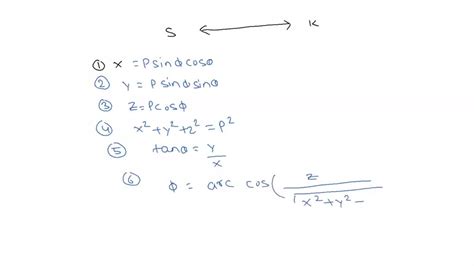 S ⟷ K
① x = P sinϕ cosθ
② y = P sinϕ sinθ
③ z = P cosϕ
④ x² + y² + z² = P²
⑤ tanθ = y/x
⑥ ϕ = arc cos(z/√x² + y² −